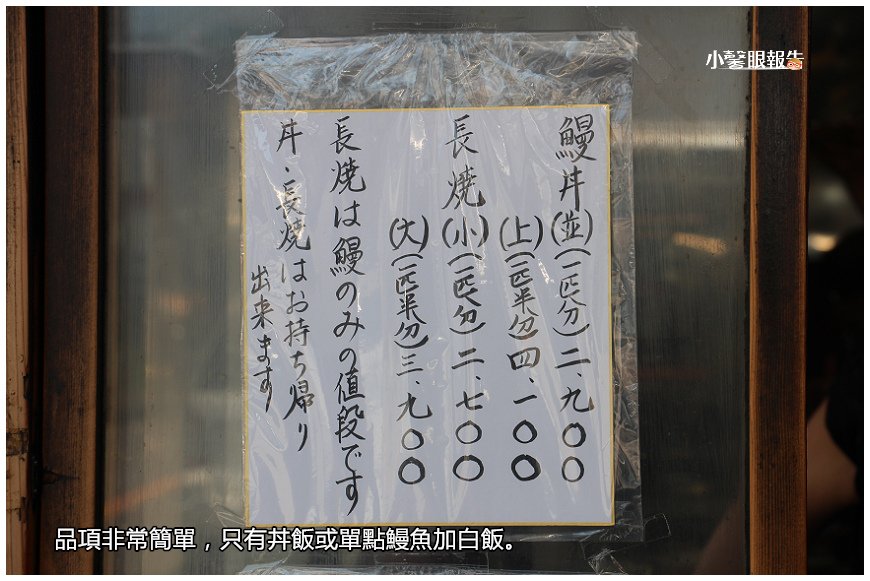 小馨眼報告
鰻丼(並)(一匹分)二、九〇〇
(上)(一匹半分)四、一〇〇
長焼(小)(一匹分)二、七〇〇
(大)(一匹半分)三、九〇〇
長焼は鰻のみの値段です
丼・長焼はお持ち帰り
出来ます
品項非常簡單，只有丼飯或單點鰻魚加白飯。